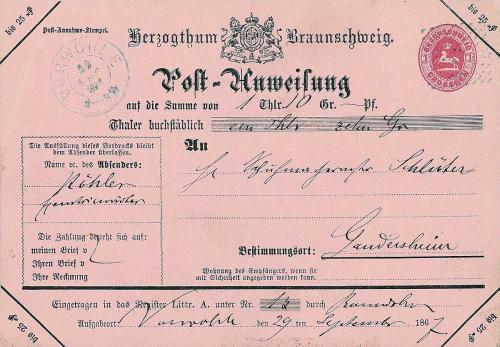 bis 25 𝔭
bis 25 𝔭
Post-Annahme-Stempel.
VORWOHLE
Herzogthum Braunschweig.
BRAUNSCHWEIG
GROSCHEN
Post-Anweisung
auf die Summe von 1 Thlr. 10 Gr. Pf.
Thaler buchstäblich ein Thlr zehn Gr
Die Ausfüllung dieses Vordrucks bleibt
dem Absender überlassen.
Name ꝛc. des Absenders:
Köhler
An
Hr Schuhmachermstr Schlüter
Die Zahlung bezieht sich auf:
meinen Brief v
Ihren Brief v
Ihre Rechnung
Bestimmungsort: Gandersheim
Wohnung des Empfängers, wenn sie
mit Sicherheit angegeben werden kann.
Eingetragen in das Register Littr. A. unter Nr. 12 durch
Aufgabeort Vorwohle den 29 ten September 1867
bis 25 𝔭
bis 25 𝔭